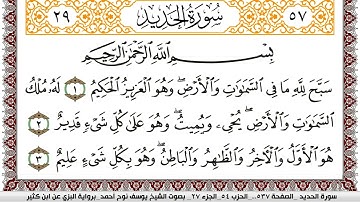 ٢٩ سُورَةُ الحَدِيدِ ٥٧
بِسْمِ اللَّهِ الرَّحْمَٰنِ الرَّحِيمِ
سَبَّحَ لِلَّهِ مَا فِي السَّمَٰوَٰتِ وَالْأَرْضِ ۖ وَهُوَ الْعَزِيزُ الْحَكِيمُ ١ لَهُۥ مُلْكُ
السَّمَٰوَٰتِ وَالْأَرْضِ ۖ يُحْيِۦ وَيُمِيتُ ۖ وَهُوَ عَلَىٰ كُلِّ شَيْءٍ قَدِيرٌ ٢
هُوَ الْأَوَّلُ وَالْآخِرُ وَالظَّٰهِرُ وَالْبَاطِنُ ۖ وَهُوَ بِكُلِّ شَيْءٍ عَلِيمٌ ٣
سورة الحديد _ الصفحة ٥٣٧ _ الحزب ٥٤ _ الجزء ٢٧ _ بصوت الشيخ يوسف نوح أحمد _ برواية البزي عن ابن كثير